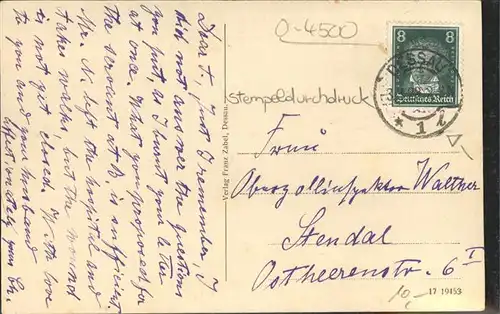 O-4500
Dear T., Just I remember, I
did not answer the questions
you put, as I burnt your letter
at once. What you proposed for
the servant at B. is sufficient.
Mr. N. left the hospital and
takes walks, but the wound
is not yet closed. With love
to you and your husband
affectionately your
8 8
Deutsches Reich
DESSAU
* 1
stempeldurchdruck
Verlag Franz Zabel, Dessau.
Frau
Oberzollinspektor Walther
Stendal
Ostheerenstr. 6 I
10,-
17 19153